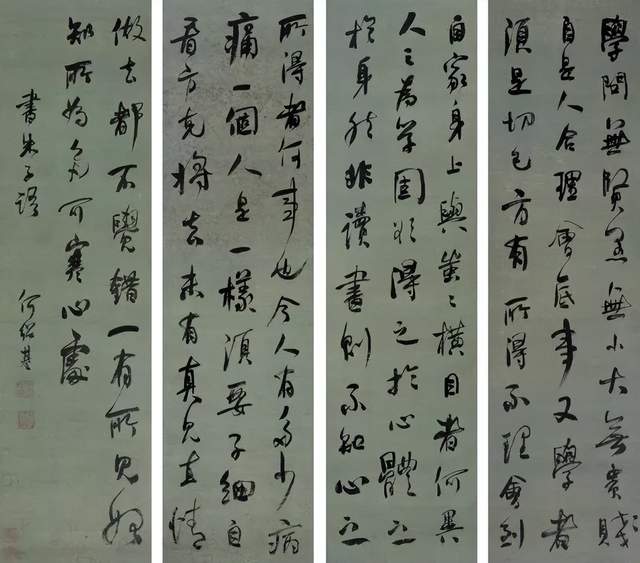 學問無賢愚無小大無貴賤
自是人合理會底事又學者
須是切己方有所得不理會到
自家身上與蚩〻橫目者何異
人之為學固欲得之於心體之
於身然非讀書則不知心之
所得者何事也今人有多少病
痛一個人是一樣須要子細自
看方克將去未有真見直情
做去都不覺錯一有所見始
知所為多可寒心處
書朱子語 何紹基